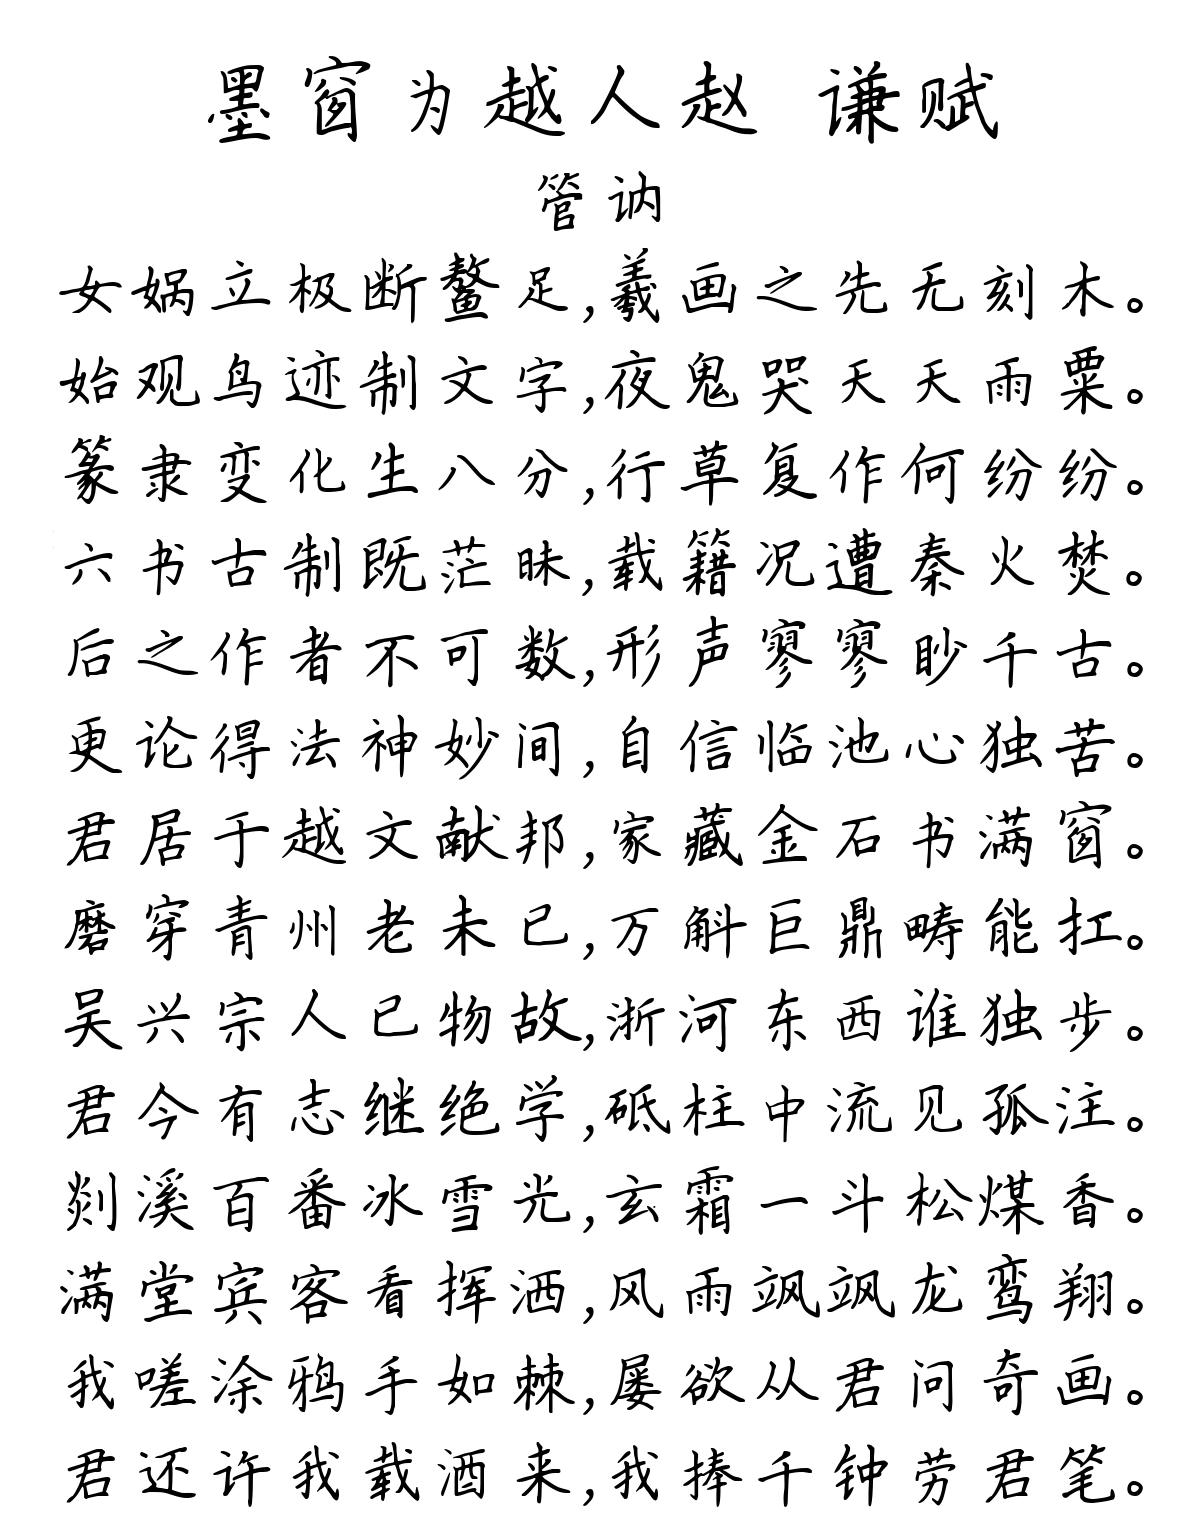 墨窗为越人赵 谦赋
管讷
女娲立极断鳌足,羲画之先无刻木。
始观鸟迹制文字,夜鬼哭天天雨粟。
篆隶变化生八分,行草复作何纷纷。
六书古制既茫昧,载籍况遭秦火焚。
后之作者不可数,形声寥寥眇千古。
更论得法神妙间,自信临池心独苦。
君居于越文献邦,家藏金石书满窗。
磨穿青州老未已,万斛巨鼎畴能扛。
吴兴宗人已物故,浙河东西谁独步。
君今有志继绝学,砥柱中流见孤注。
剡溪百番冰雪光,玄霜一斗松煤香。
满堂宾客看挥洒,风雨飒飒龙鸾翔。
我嗟涂鸦手如棘,屡欲从君问奇画。
君还许我载酒来,我捧千钟劳君笔。